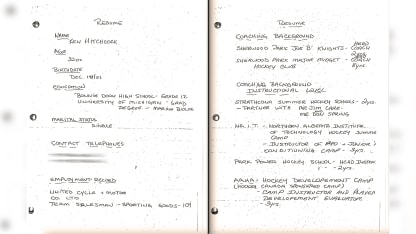 RESUME
NAME
KEN HITCHCOCK
AGE
BIRTHDATE
DEC 18/51
EDUCATION
BONNIE DOON HIGH SCHOOL - GRADE 12
UNIVERSITY OF MICHIGAN - GRAD
DEGREE -
MARITAL STATUS
SINGLE
CONTACT TELEPHONES
EMPLOYMENT RECORD
UNITED CYCLE + MOTOR
CO LTD
TEAM SALESMAN - SPORTING GOODS - 10
RESUME
COACHING BACKGROUND
SHERWOOD PARK JR 'B' KNIGHTS - HEAD COACH
2yrs.
SHERWOOD PARK MAJOR MIDGET - HEAD COACH
HOCKEY CLUB
COACHING BACKGROUND
INSTRUCTIONAL LEVEL
STRATHCONA SUMMER HOCKEY SCHOOLS - 2yrs.
- PARTNER WITH MR JIM CARR
MR DON SPRING
N.A.I.T. - NORTHERN ALBERTA INSTITUTE
OF TECHNOLOGY HOCKEY SUMMER
CAMP
- INSTRUCTOR OF PRO + JUNIOR
CONDITIONING CAMP - 3yrs.
PARK POWER HOCKEY SCHOOL - HEAD INSTR
- 2yrs.
A.A.H.A. - HOCKEY DEVELOPEMENT CAMP
(HOCKEY CANADA SPONSORED CAMP)
- CAMP INSTRUCTOR AND PLAYER
DEVELOPEMENT EVALUATOR
- 3yrs.